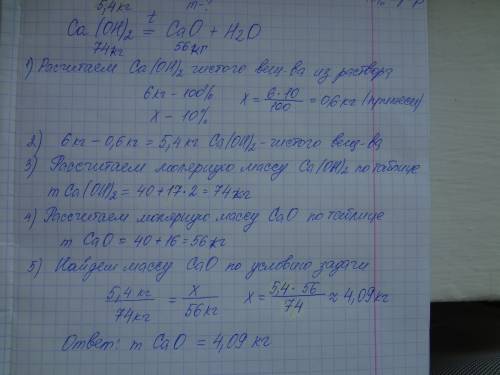 5,4 кг m-?
Ca(OH)₂ =ᵗ CaO + H₂O
74кг 56кг
1) Расчитаем Ca(OH)₂ чистого вещ-ва из раствора
6кг - 100% x = 6·10/100 = 0,6 кг (примеси)
x - 10%
2) 6кг - 0,6кг = 5,4 кг Ca(OH)₂ - чистого вещ-ва
3) Рассчитаем молярную массу Ca(OH)₂ по таблице
m Ca(OH)₂ = 40 + 17·2 = 74кг
4) Рассчитаем молярную массу CaO по таблице
m CaO = 40 + 16 = 56кг
5) Найдем массу CaO по условию задачи
5,4 кг/74кг = x/56кг x = 5,4·56/74 ≈ 4,09кг
Ответ: m CaO = 4,09 кг